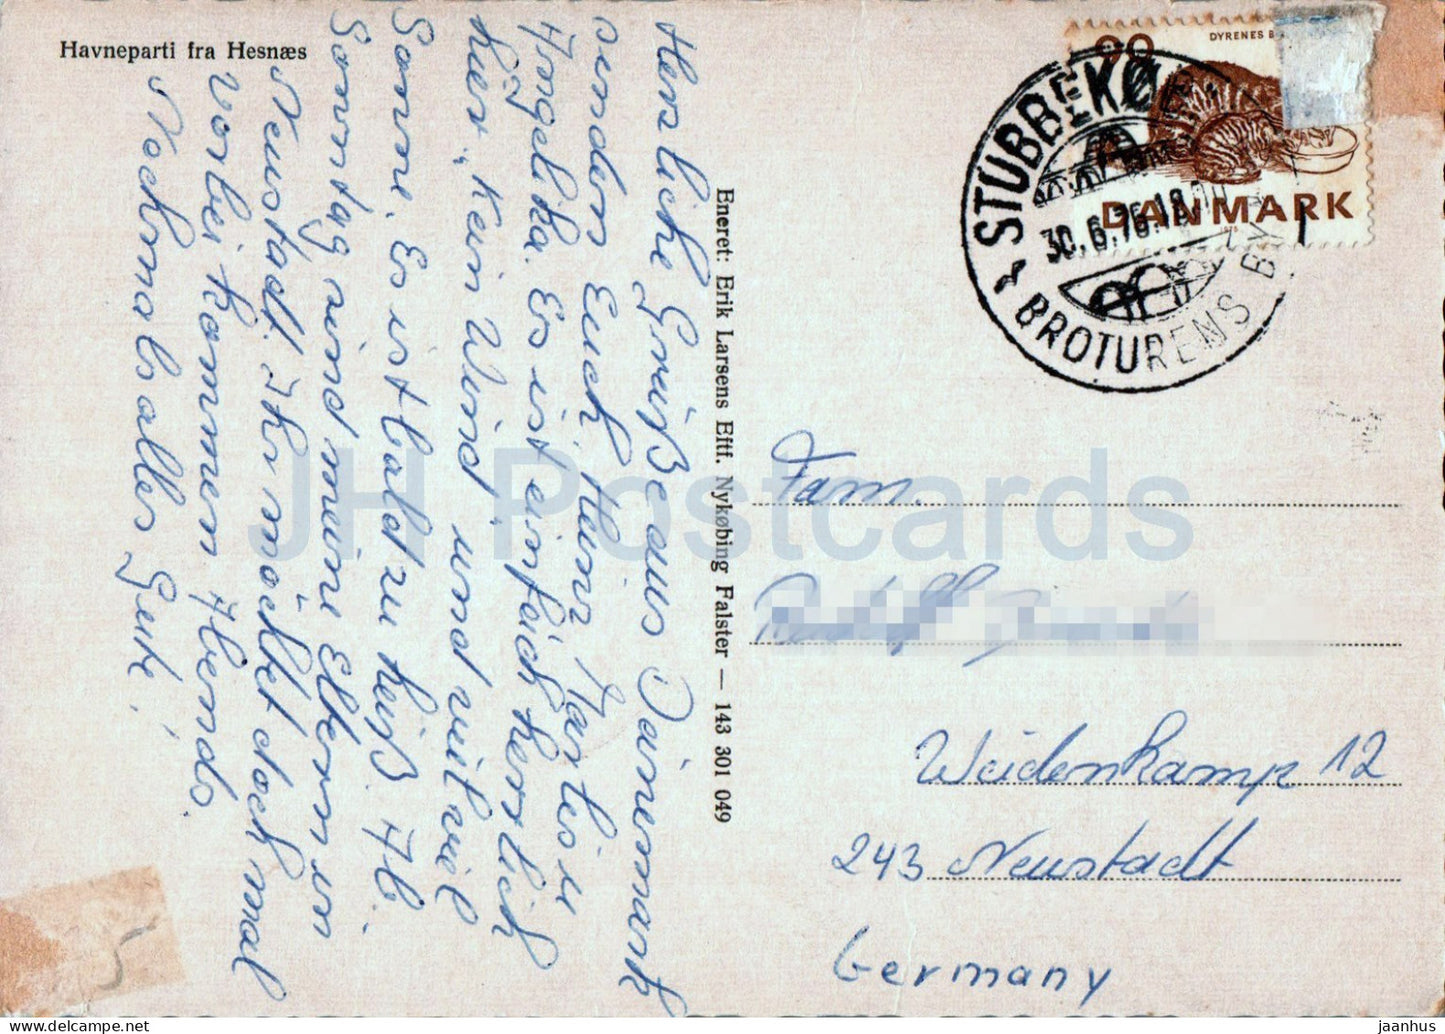 Havneparti fra Hesnæs
Herzliche Grüße aus Dänemark
senden Euch. Heinz Karlis u
Angelika. Es ist einfach herrlich
hier, kein Wind, und viel
Sonne. Es ist bald zu heiß. Ab.
Sonntag sind meine Eltern in
Neustadt. Ihr möchtet doch mal
vorbei kommen Abends.
Nochmals alles Gute.
Eneret: Erik Larsens Eftf. Nykøbing Falster — 143 301 049
90
DYRENES B
DANMARK
1975
STUBBEKØ
30.6.76.18
BROTURENS BY
Fam.
Weidenkamp 12
243 Neustadt
Germany
5
JH Postcards
delcampe.net
jaanhus